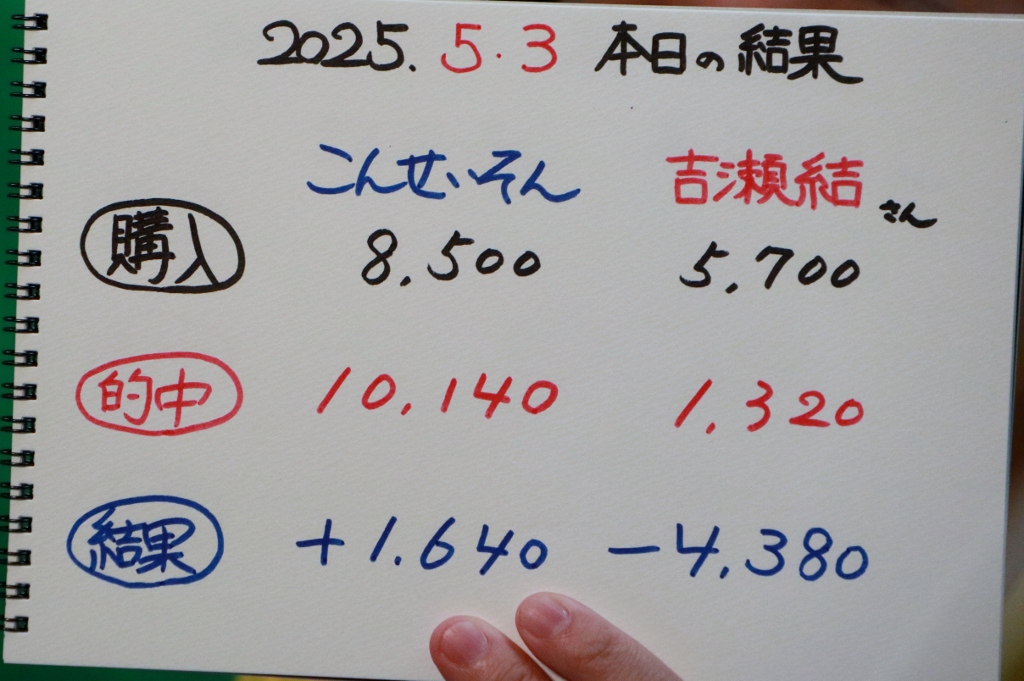 2025. 5・3 本日の結果
こんせいそん 吉瀬結さん
購入 8,500 5,700
的中 10,140 1,320
結果 +1.640 -4,380